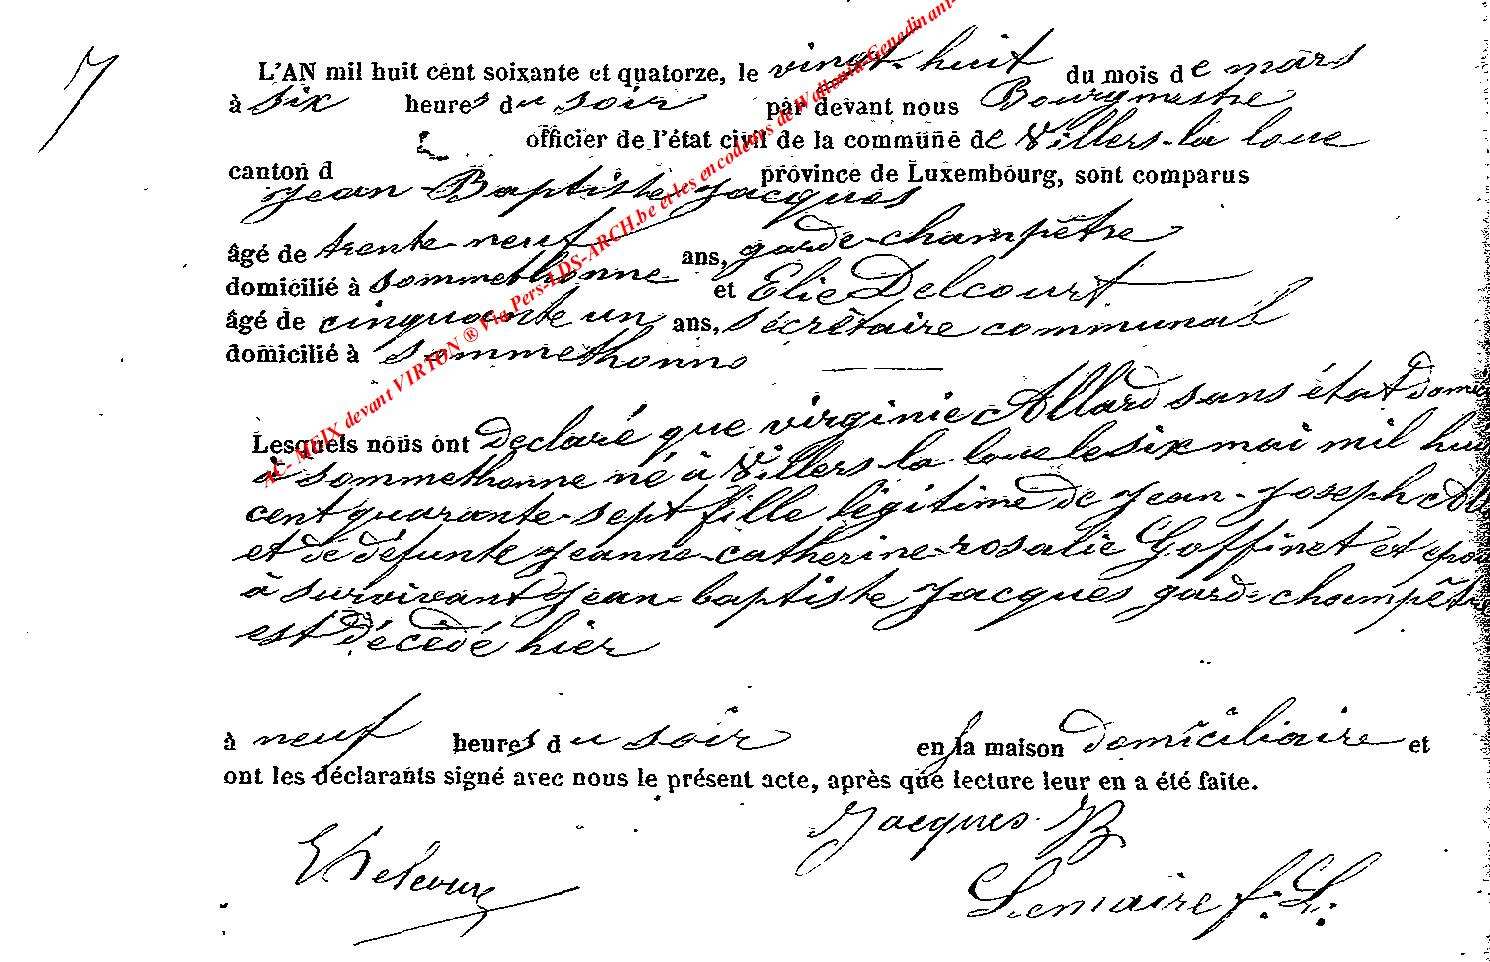 7
L'AN mil huit cent soixante et quatorze, le vingt-huit du mois de mars
à six heures du soir par devant nous Bourgmestre
officier de l'état civil de la commune de Villers-la loue
canton d province de Luxembourg, sont comparus
Jean-Baptiste Jacques
âgé de trente-neuf ans, garde-champêtre
domicilié à Sommethonne et Elie Delcourt
âgé de cinquante un ans, secrêtaire communal
domicilié à Sommethonne
Lesquels nous ont déclaré que virginie Allard sans état domici
à sommethonne né à Villers-la-loue le six mai mil hui
cent quarante-sept fille légitime de Jean-Joseph All
et de défunte Jeanne-catherine-rosalie Goffinet et epou
à survivant Jean-baptiste Jacques garde-champêtr
est décédé hier
à neuf heures du soir en la maison domiciliaire et
ont les déclarants signé avec nous le présent acte, après que lecture leur en a été faite.
Jacques JB
E Delcourt
Lemaire f. L.
AC- MEIX devant VIRTON ® Via Pers-LDS-ARCH.be et les encodeurs de Wallonia-Genedinant-